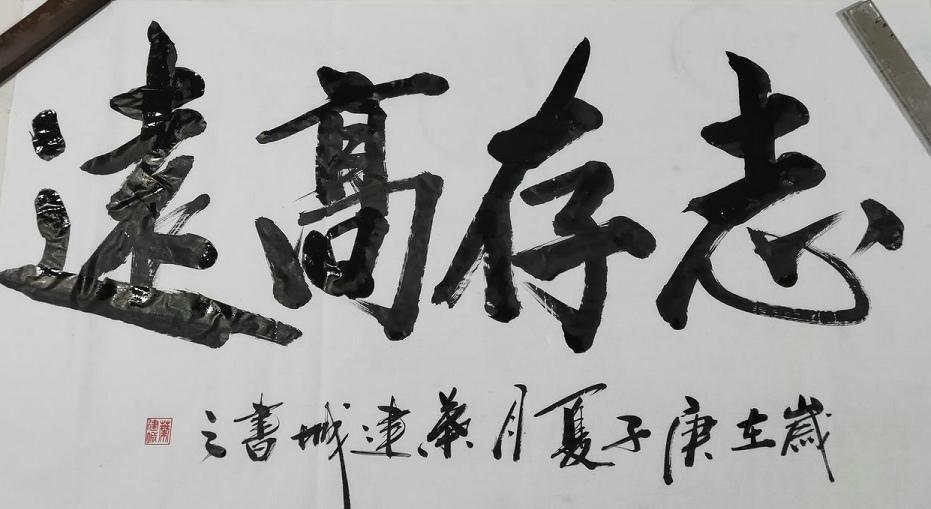 志存高遠
歲在庚子夏月葉建城書之
葉建城